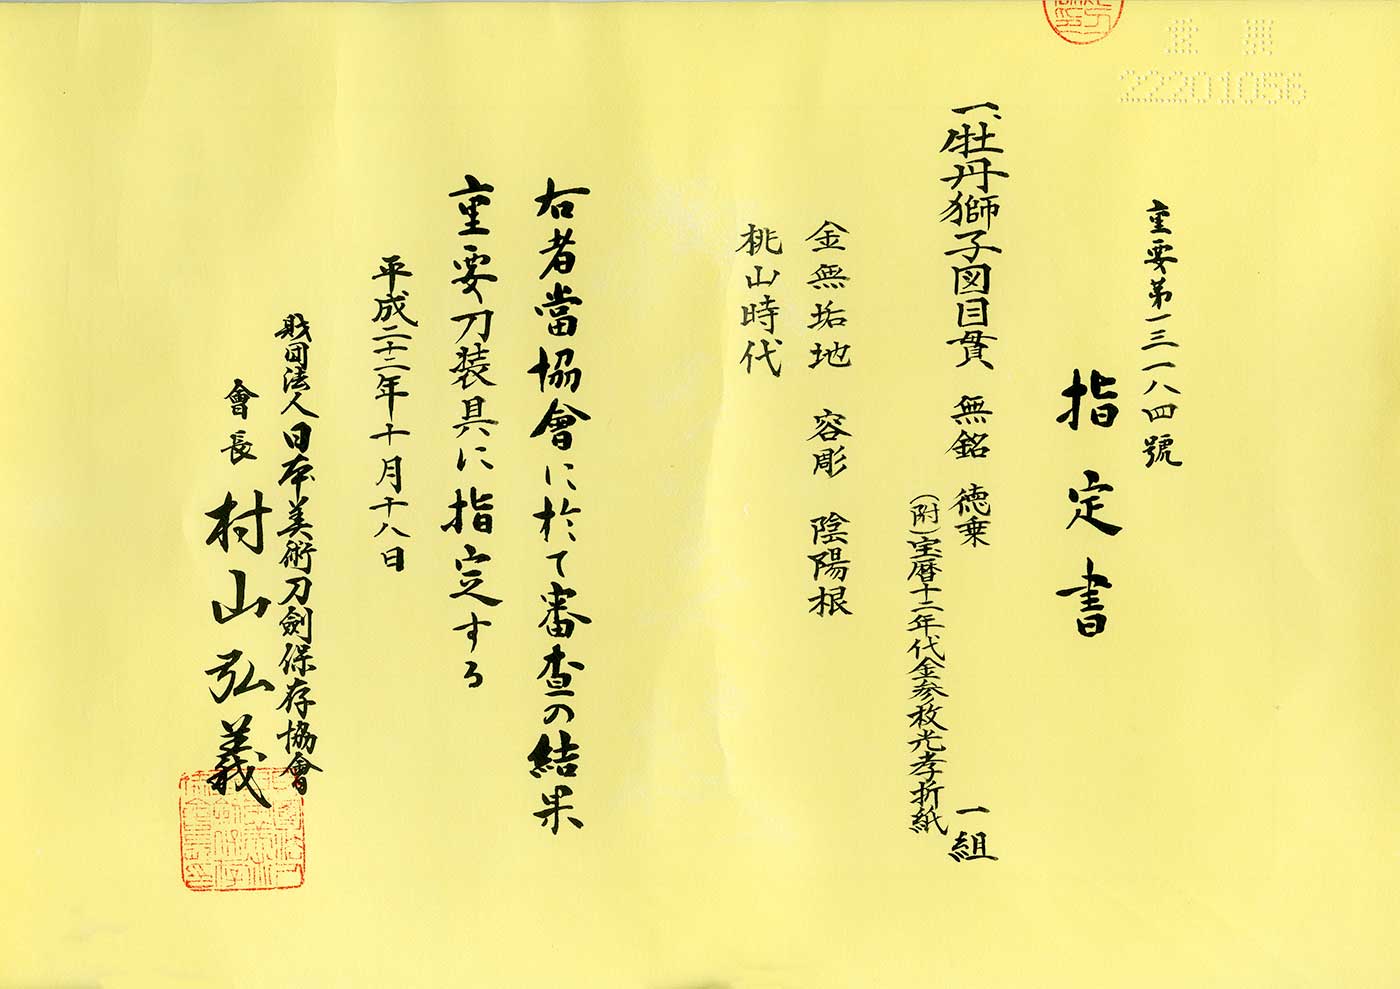 重要
22201056
重要第一三一八四號
指定書
一、牡丹獅子図目貫 無銘 徳乗 一組
(附)宝暦十二年代金参枚光孝折紙
金無垢地 容彫 陰陽根
桃山時代
右者當協會に於て審査の結果
重要刀装具に指定する
平成二十二年十月十八日
財団法人日本美術刀劍保存協會
會長 村山弘義